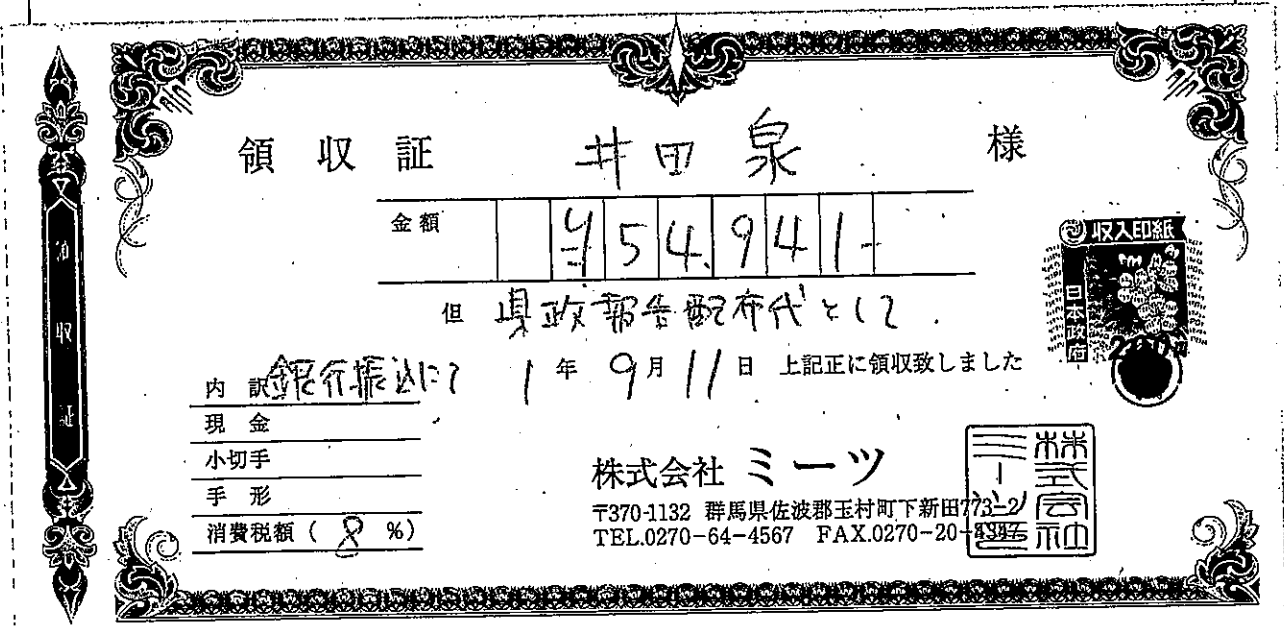 領収証
領収証 井田泉 様
金額 ¥54,941-
但 県政報告配布代として
内訳 銀行振込にて 1年9月11日 上記正に領収致しました
現金
小切手
手形
消費税額（8%）
収入印紙
日本政府
200円
株式会社 ミーツ
〒370-1132 群馬県佐波郡玉村町下新田773-2
TEL.0270-64-4567 FAX.0270-20-
株式会社
ミーツ